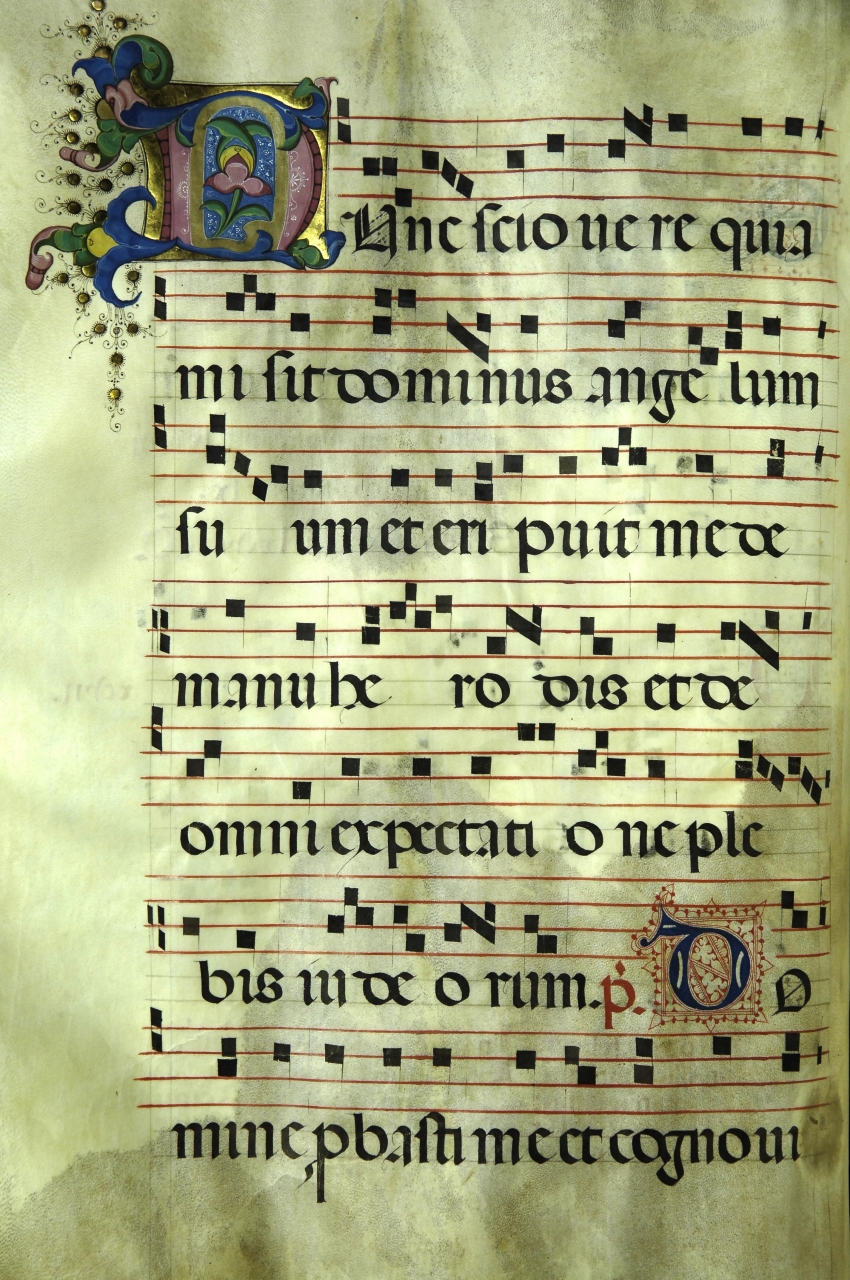 NUnc scio ue re quia
mi sit dominus ange lum
su um et eri puit me de
manu he ro dis et de
omni expectati o ne ple
bis iu de o rum. p. DO
mine pbasti me et cognoui